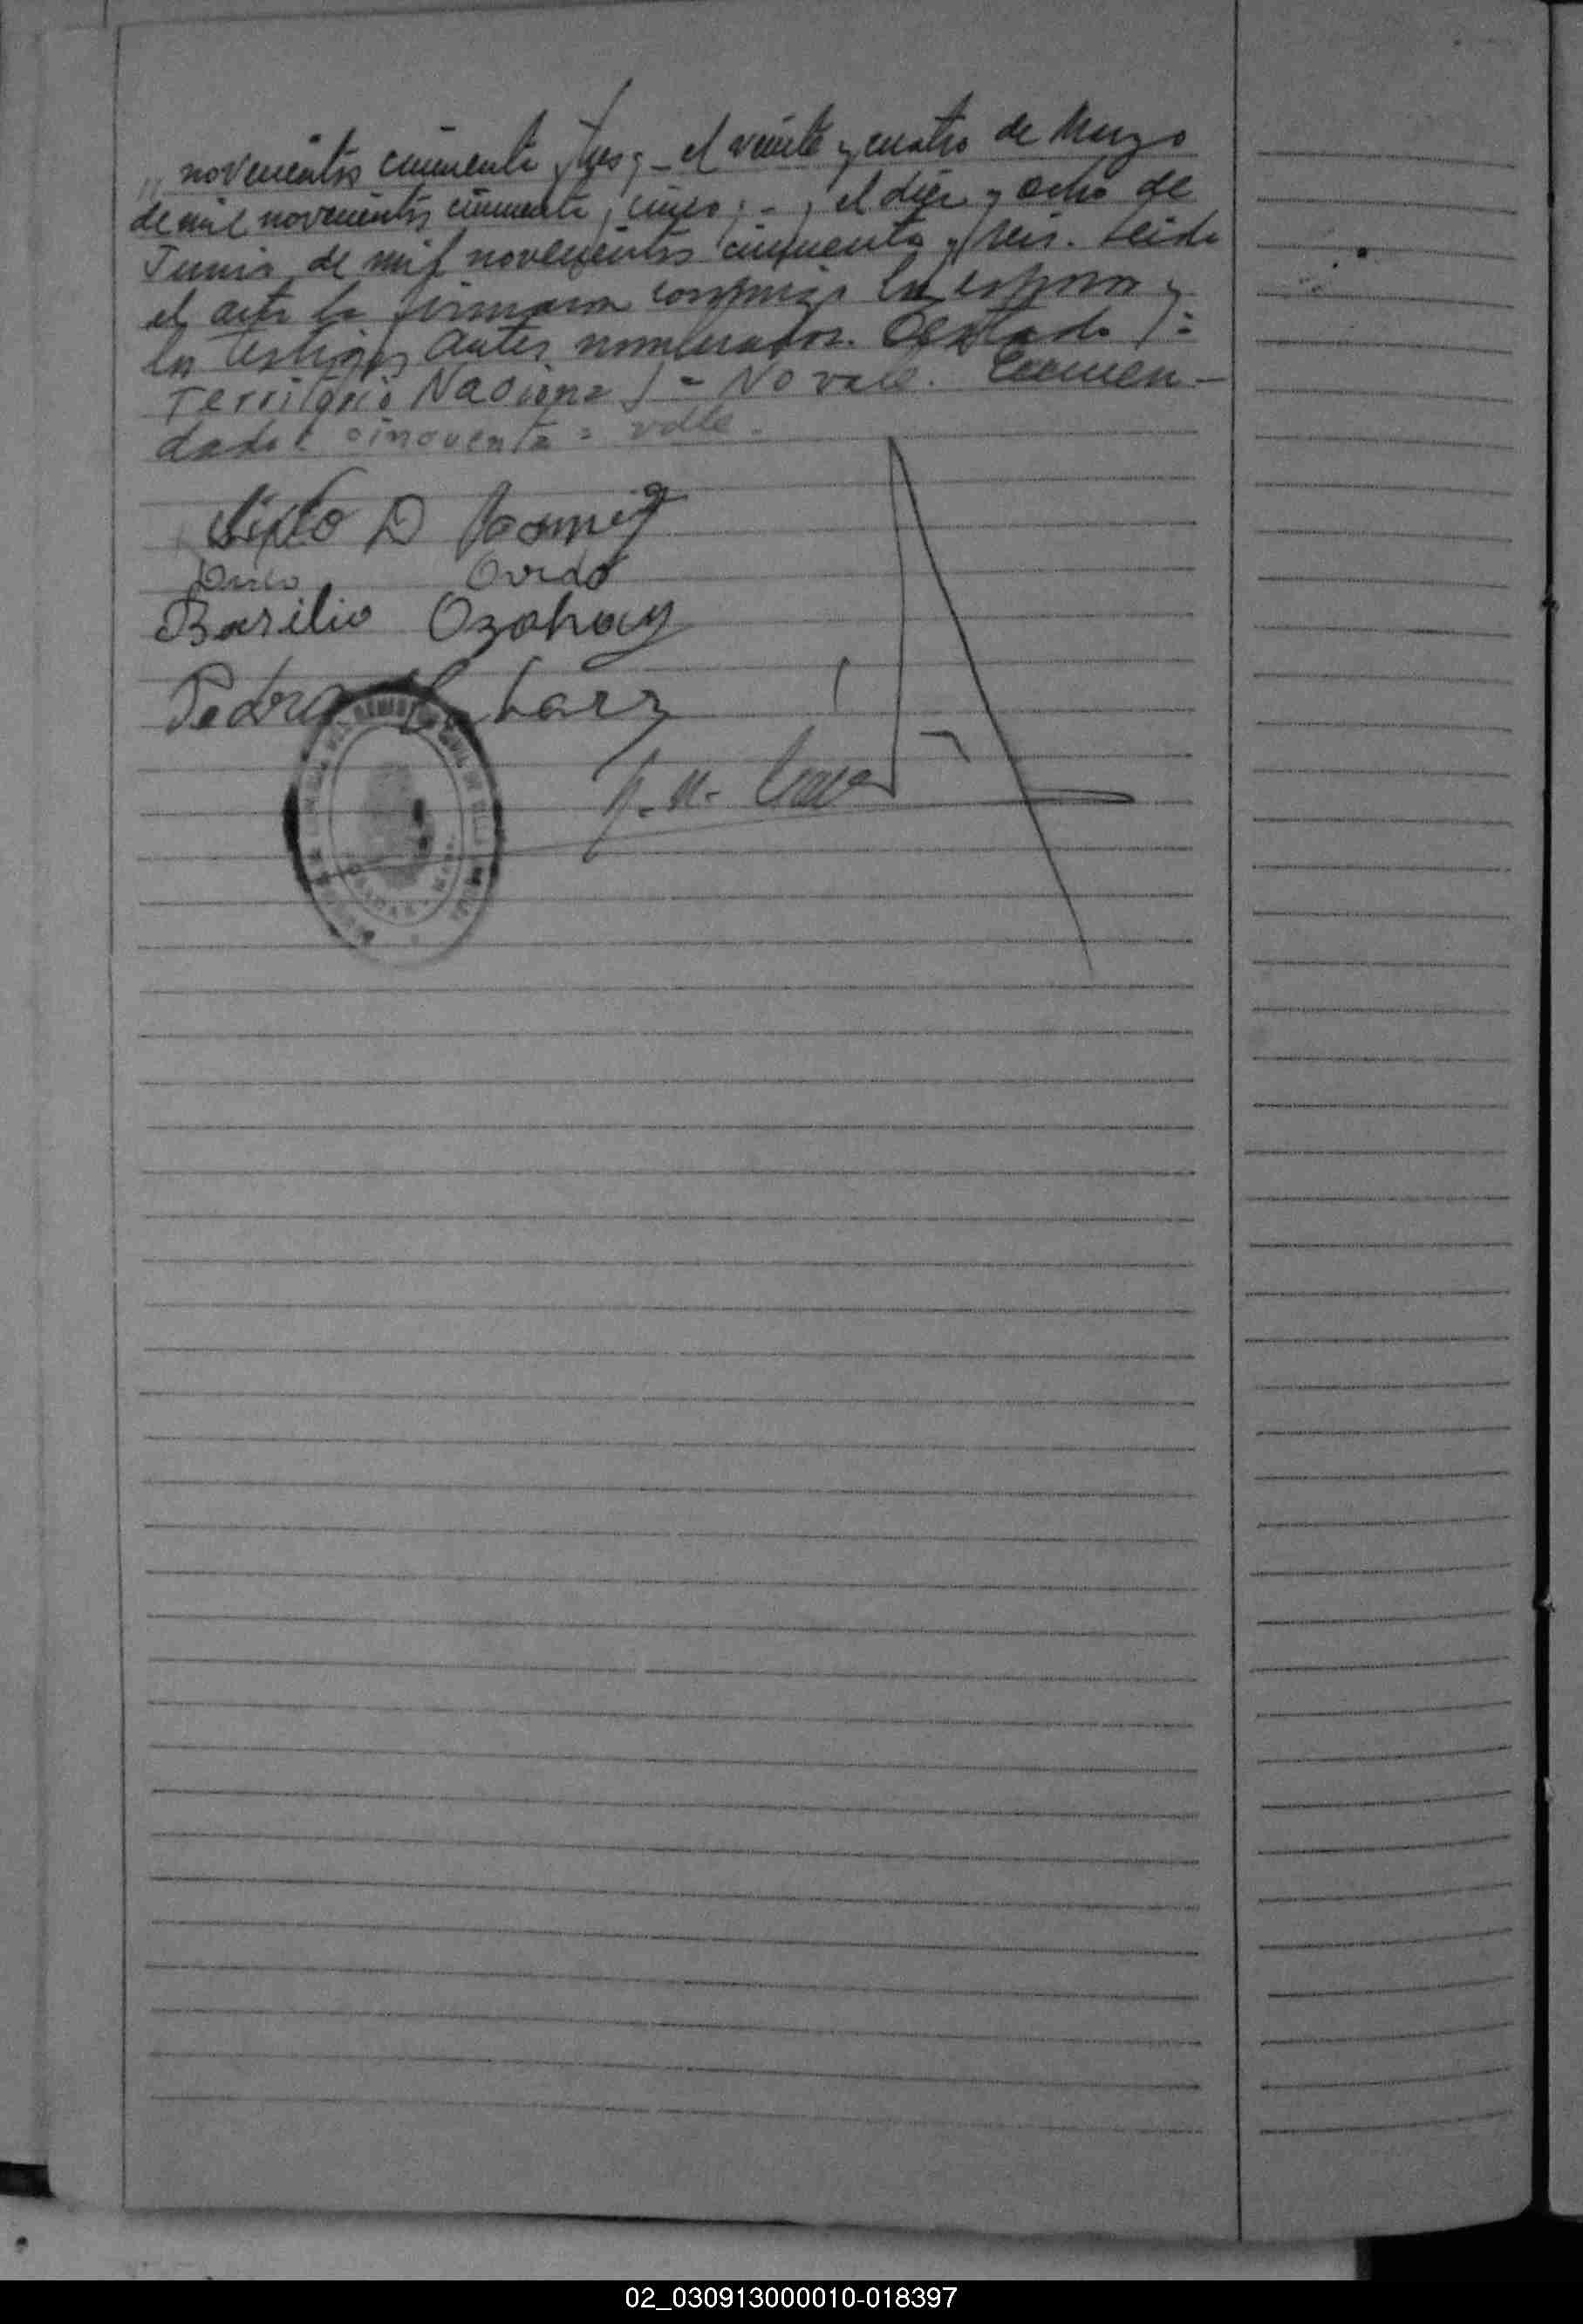 novecientos cincuenta y tres; - el veinte y cuatro de Marzo
de mil novecientos cincuenta y cinco; - y el diez y ocho de
Junio de mil novecientos cincuenta y seis. Leida
el acta la firmaron conmigo los esposos y
los testigos antes nombrados. Testado:
Territorio Nacional = No vale. Enmen-
dado: cincuenta = valle.
Sixto D
Ovido
Basilio Ozahuy
Pedro
02_030913000010-018397